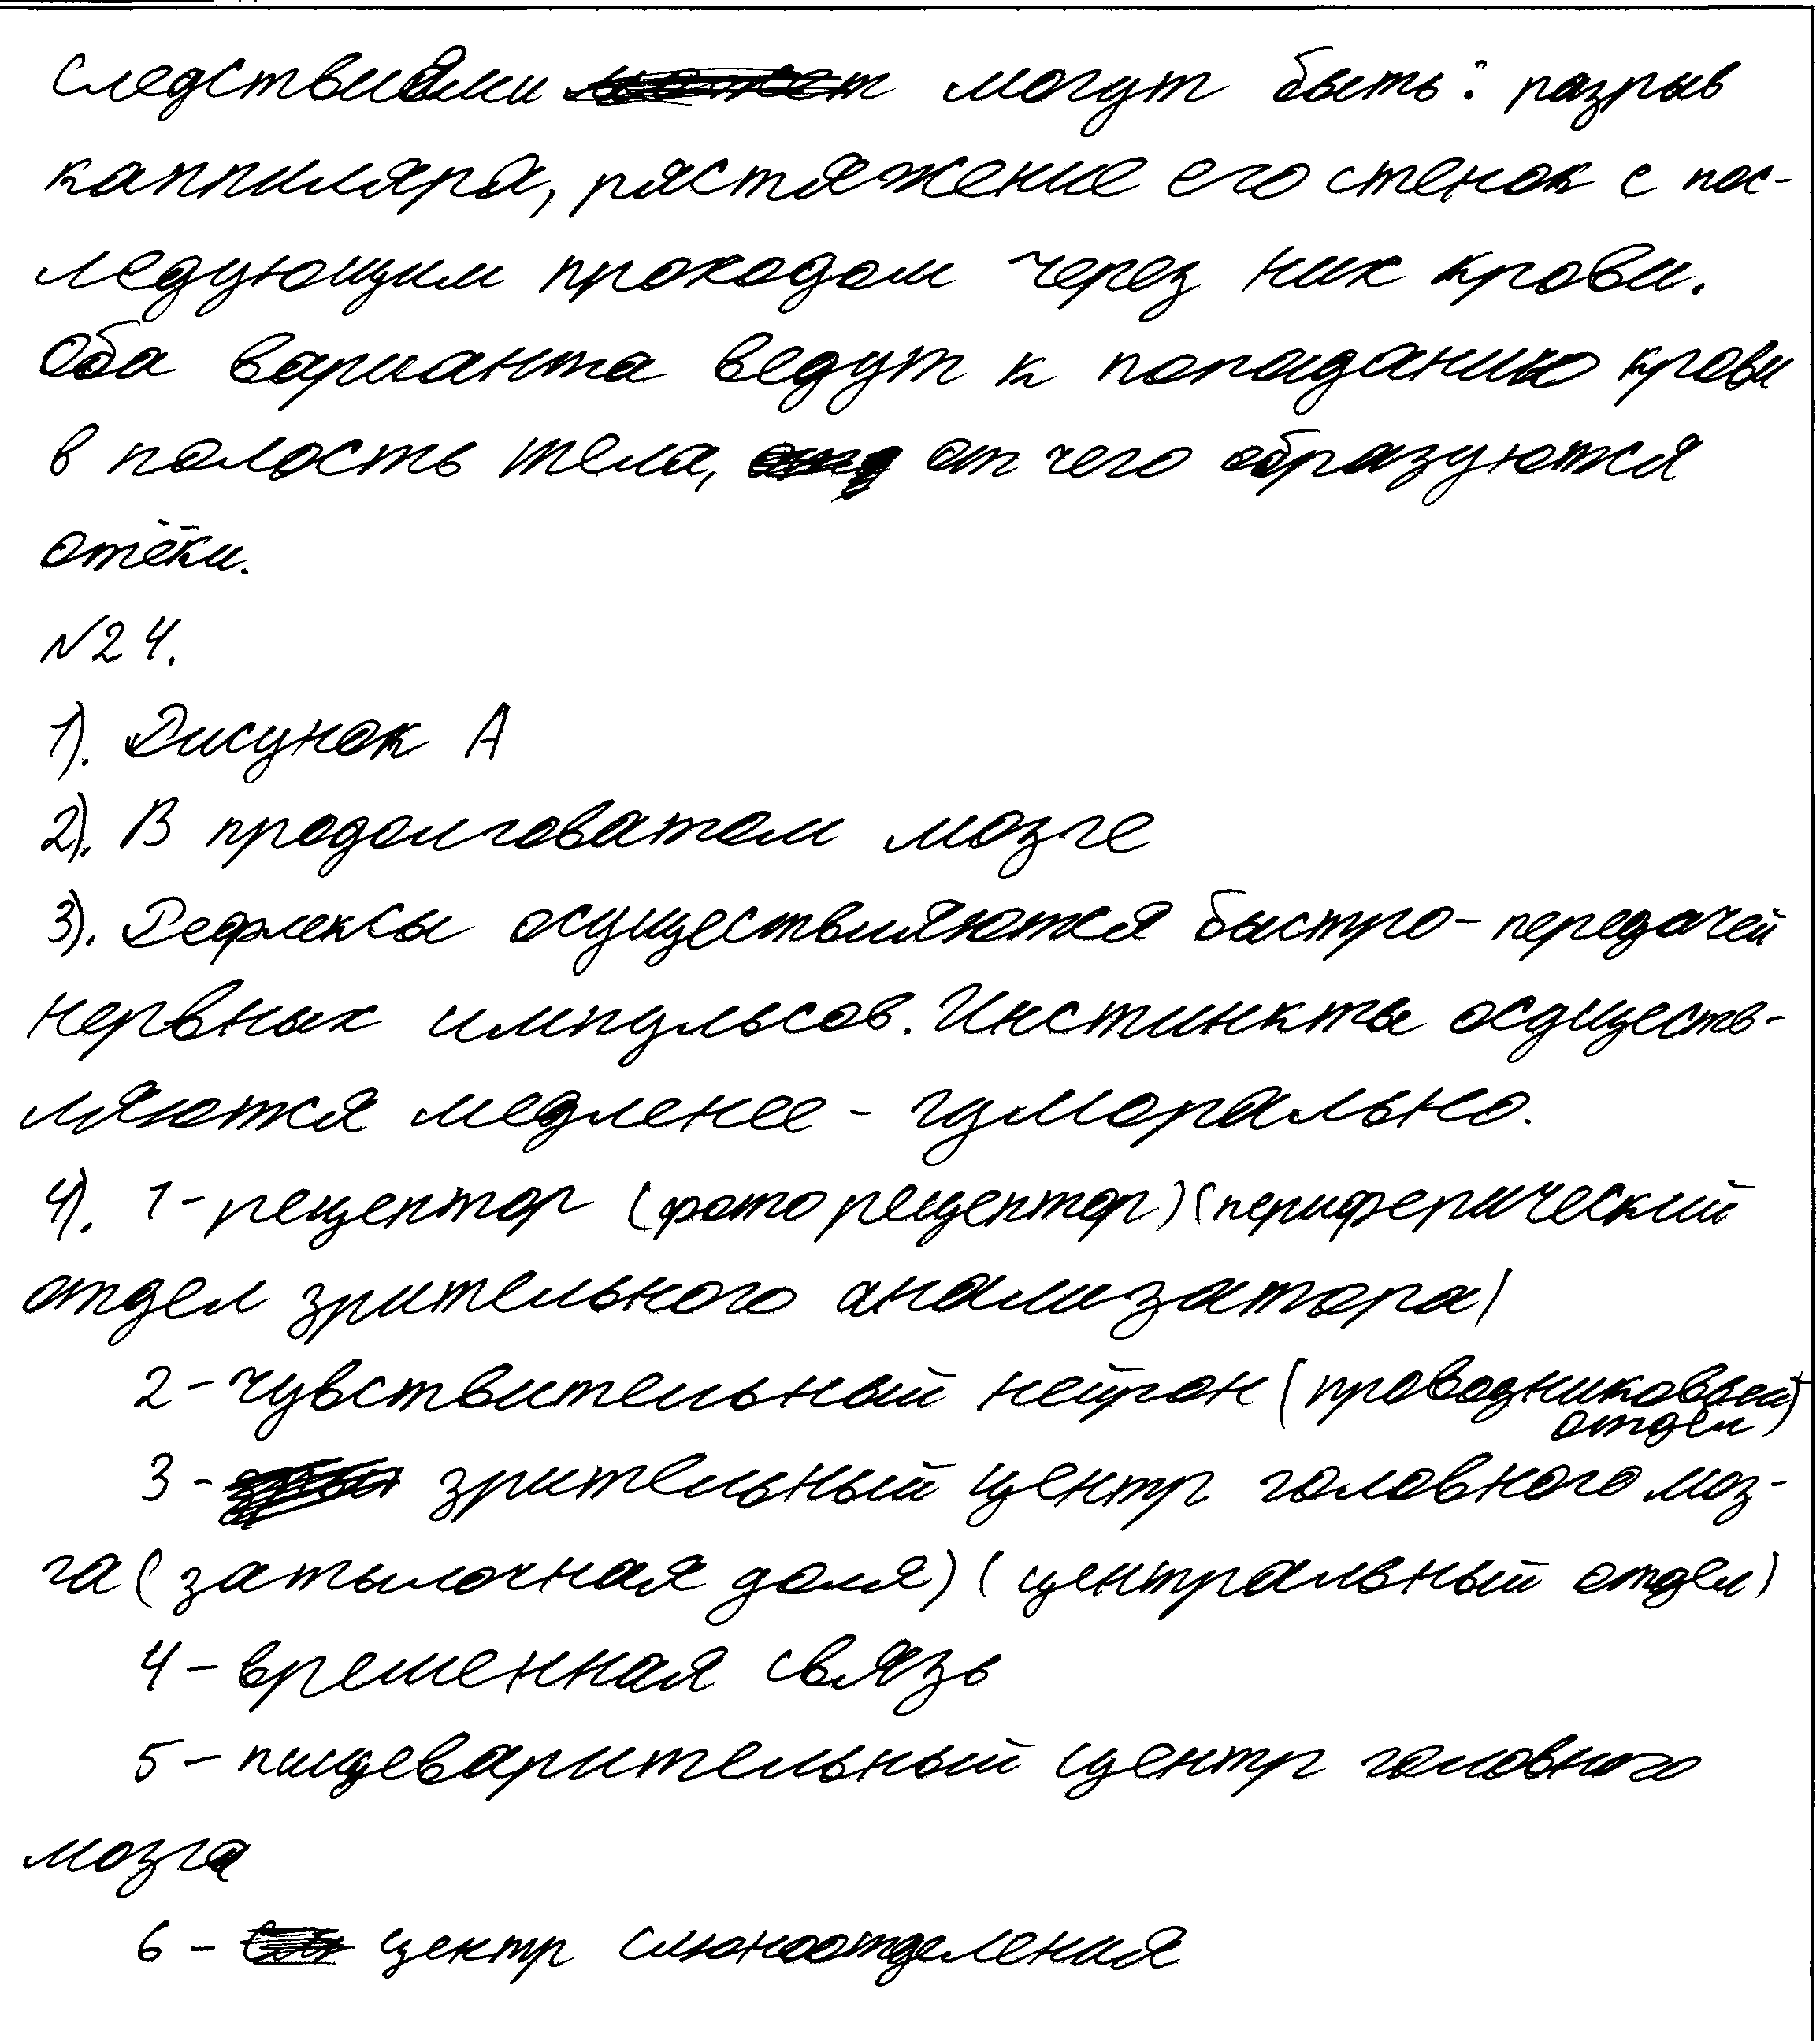 следствиями могут быть: разрыв
каппиляра, растяжение его стенок с пос-
ледующим проходом через них крови.
Оба варианта ведут к попаданию крови
в полость тела, от чего образуются
отёки.
№24.
1). Рисунок А
2). В продолговатом мозге
3). Рефлексы осуществляются быстро - передачей
нервных импульсов. Инстинкты осуществ-
ляются медленее - гуморально.
4). 1 - рецептор (фоторецептор) (периферический
отдел зрительного анализатора)
2 - чувствительный нейрон (проводниковый
отдел)
3 - зрительный центр головного моз-
га (затылочная доля) (центральный отдел)
4 - временная связь
5 - пищеварительный центр головного
мозга
6 - центр слюноотделения